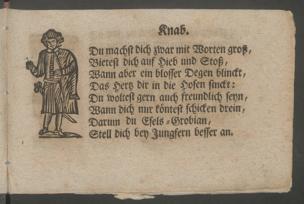 Knab.
Du machst dich zwar mit Worten groß,
Bietest dich auf Hieb und Stoß,
Wann aber ein blosser Degen blinckt,
Das Hertz dir in die Hosen sinckt:
Du woltest gern auch freundlich seyn,
Wann dich nur köntest schicken drein,
Darum du Esels-Grobian,
Stell dich bey Jungfern besser an.